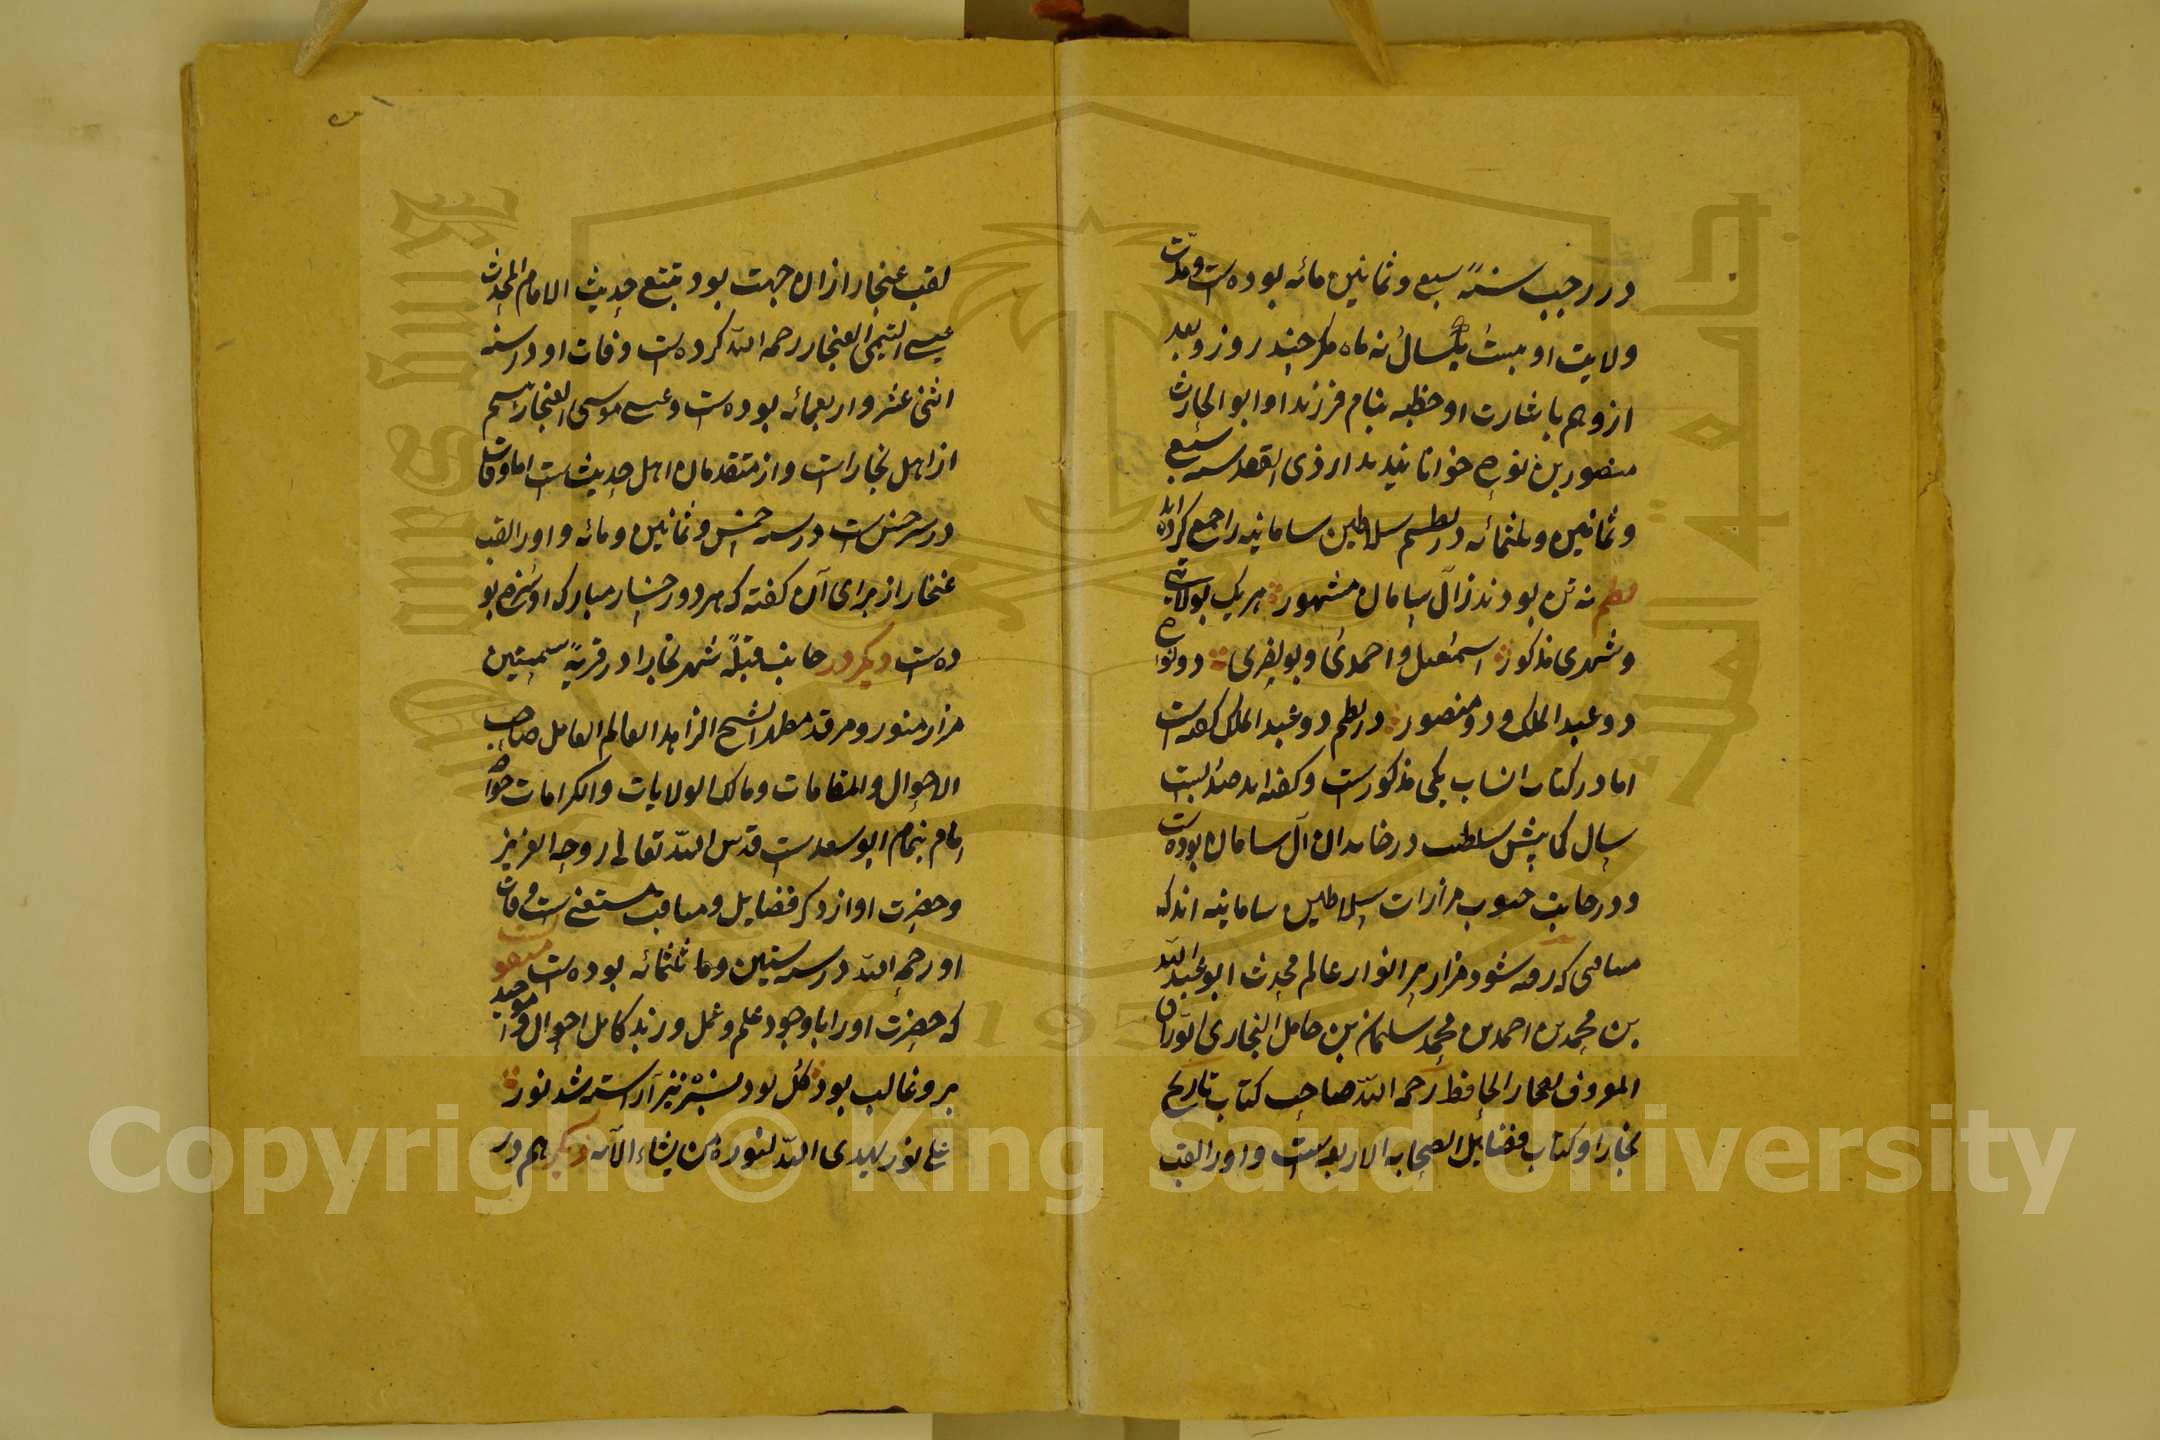 در رجب سنهٔ سبع و ثمانین مائه بوده ست و مدّت
ولایت او بیست یکسال نه ماه مکر چند روز و بعد
ازو هم باشارت او خطبه بنام فرزند او ابو الحارث
منصور بن نوح خوانانیدند از ذی القعد سنه سبع
و ثمانین و ثلثمائه در نظم سلاطین سامانیه را جمع کرده اند
نظم نه تن بودند ز آل سامان مشهور هر یک بولایتی
و شهدی مذکور اسمعیل و احمدی و بو نصری دو نوح
دو عبد الملک و دو منصور در نظم دو عبد الملک گفته ست
اما در کتاب انساب یکی مذکورست و کفته اند صد و بیست
سال کما بیش سلطنت در خاندان آل سامان بوده ست
و در جانب جنوب مزارات سلاطین سامانیه اند که
مسافتی که رفته شود مزار پر انوار عالم محدث ابو عبد الله
بن محمد بن احمد بن محمد سلیمان بن کامل البخاری الورّاق
المعروف بغنجار الحافظ رحمه الله صاحب کتاب تاریخ
بخارا و کتاب فضایل الصحابه الاربعه ست و او را لقب
لقب غنجار از ان جهت بود تتبع حدیث الامام المحدث
عیسی التیمی الغنجار رحمه الله کرده ست وفات او در سنه
اثنی عشر و اربعمائه بوده ست و عیسی موسی الغنجار هم
از اهل بخارا ست و از متقدمان اهل حدیث ست اما وفات
در سرخس ست در سنه خمس و ثمانین و مائه و او را لقب
غنجار از برای آن کفته که هر دو رخسار مبارک او سرخ بو
ده ست دیکر در جانب قبلهٔ شهر بخارا در قریهٔ سمیتین
مزار منور و مرقد مطهر الشیخ الزاهد العالم العامل صاحب
الاحوال و المقامات و مالک الولایات و الکرامات خواجه
امام بنجام ابو سعد ست قدس الله تعالی روحه العزیز
و حضرت او از ذکر فضایل و مناقب مستغنی ست وفات
او رحمه الله در سنه ستین و مائه ثلثمائه بوده ست منقولست
که حضرت او را با وجود علم و عمل و زهد کامل احوال و مواجید
برو غالب بود کل بود بسبزه نیز آراسته شد نور
علی نور یهدی الله لنوره من یشاء الآیه دیکر هم در
Copyright © King Saud University
King Saud University
جامعة الملك سعود
195